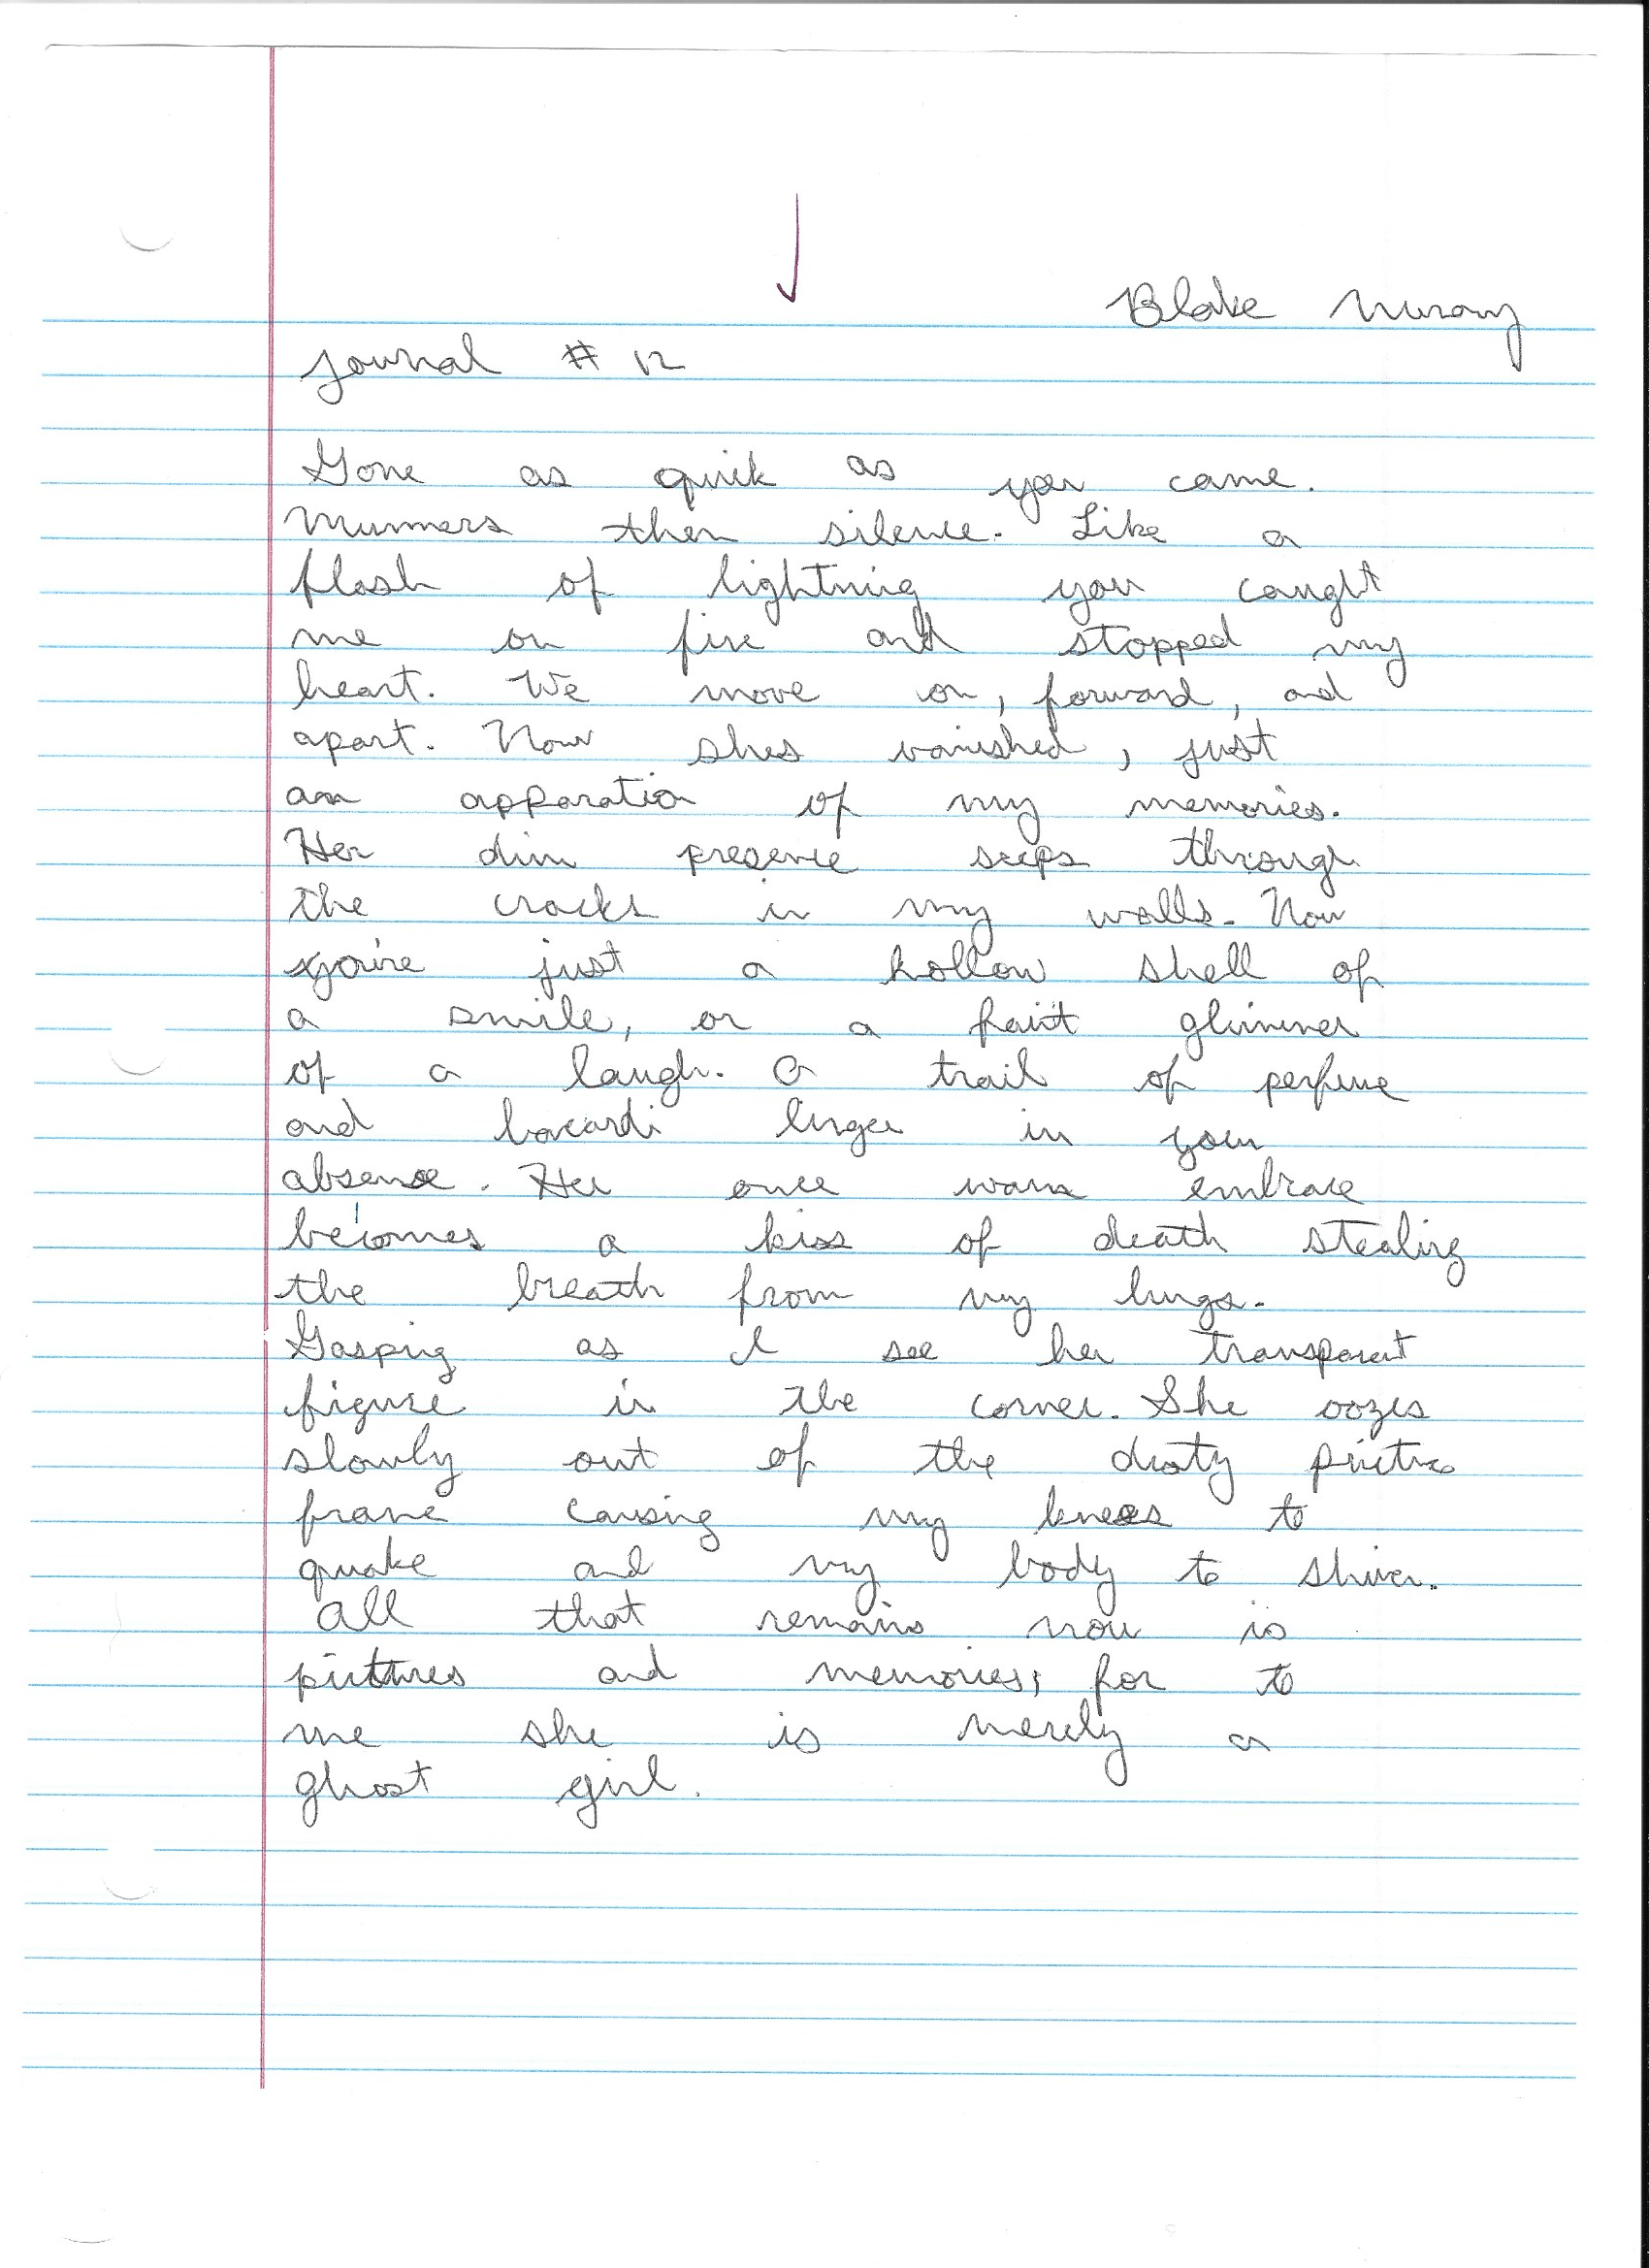 Blake Murray
Journal # 12
Gone as quick as you came.
Murmers then silence. Like a
flash of lightning you caught
me on fire and stopped my
heart. We move on, forward, and
apart. Now shes vanished, just
an apparation of my memories.
Her dim presence seeps through
the cracks in my walls. Now
you're just a hollow shell of
a smile, or a faint glimmer
of a laugh. A trail of perfume
and bacardi linger in your
absence. Her once warm embrace
becomes a kiss of death stealing
the breath from my lungs.
Gasping as I see her transparent
figure in the corner. She oozes
slowly out of the dusty picture
frame causing my knees to
quake and my body to shiver.
All that remains now is
pictures and memories; for to
me she is merely a
ghost girl.